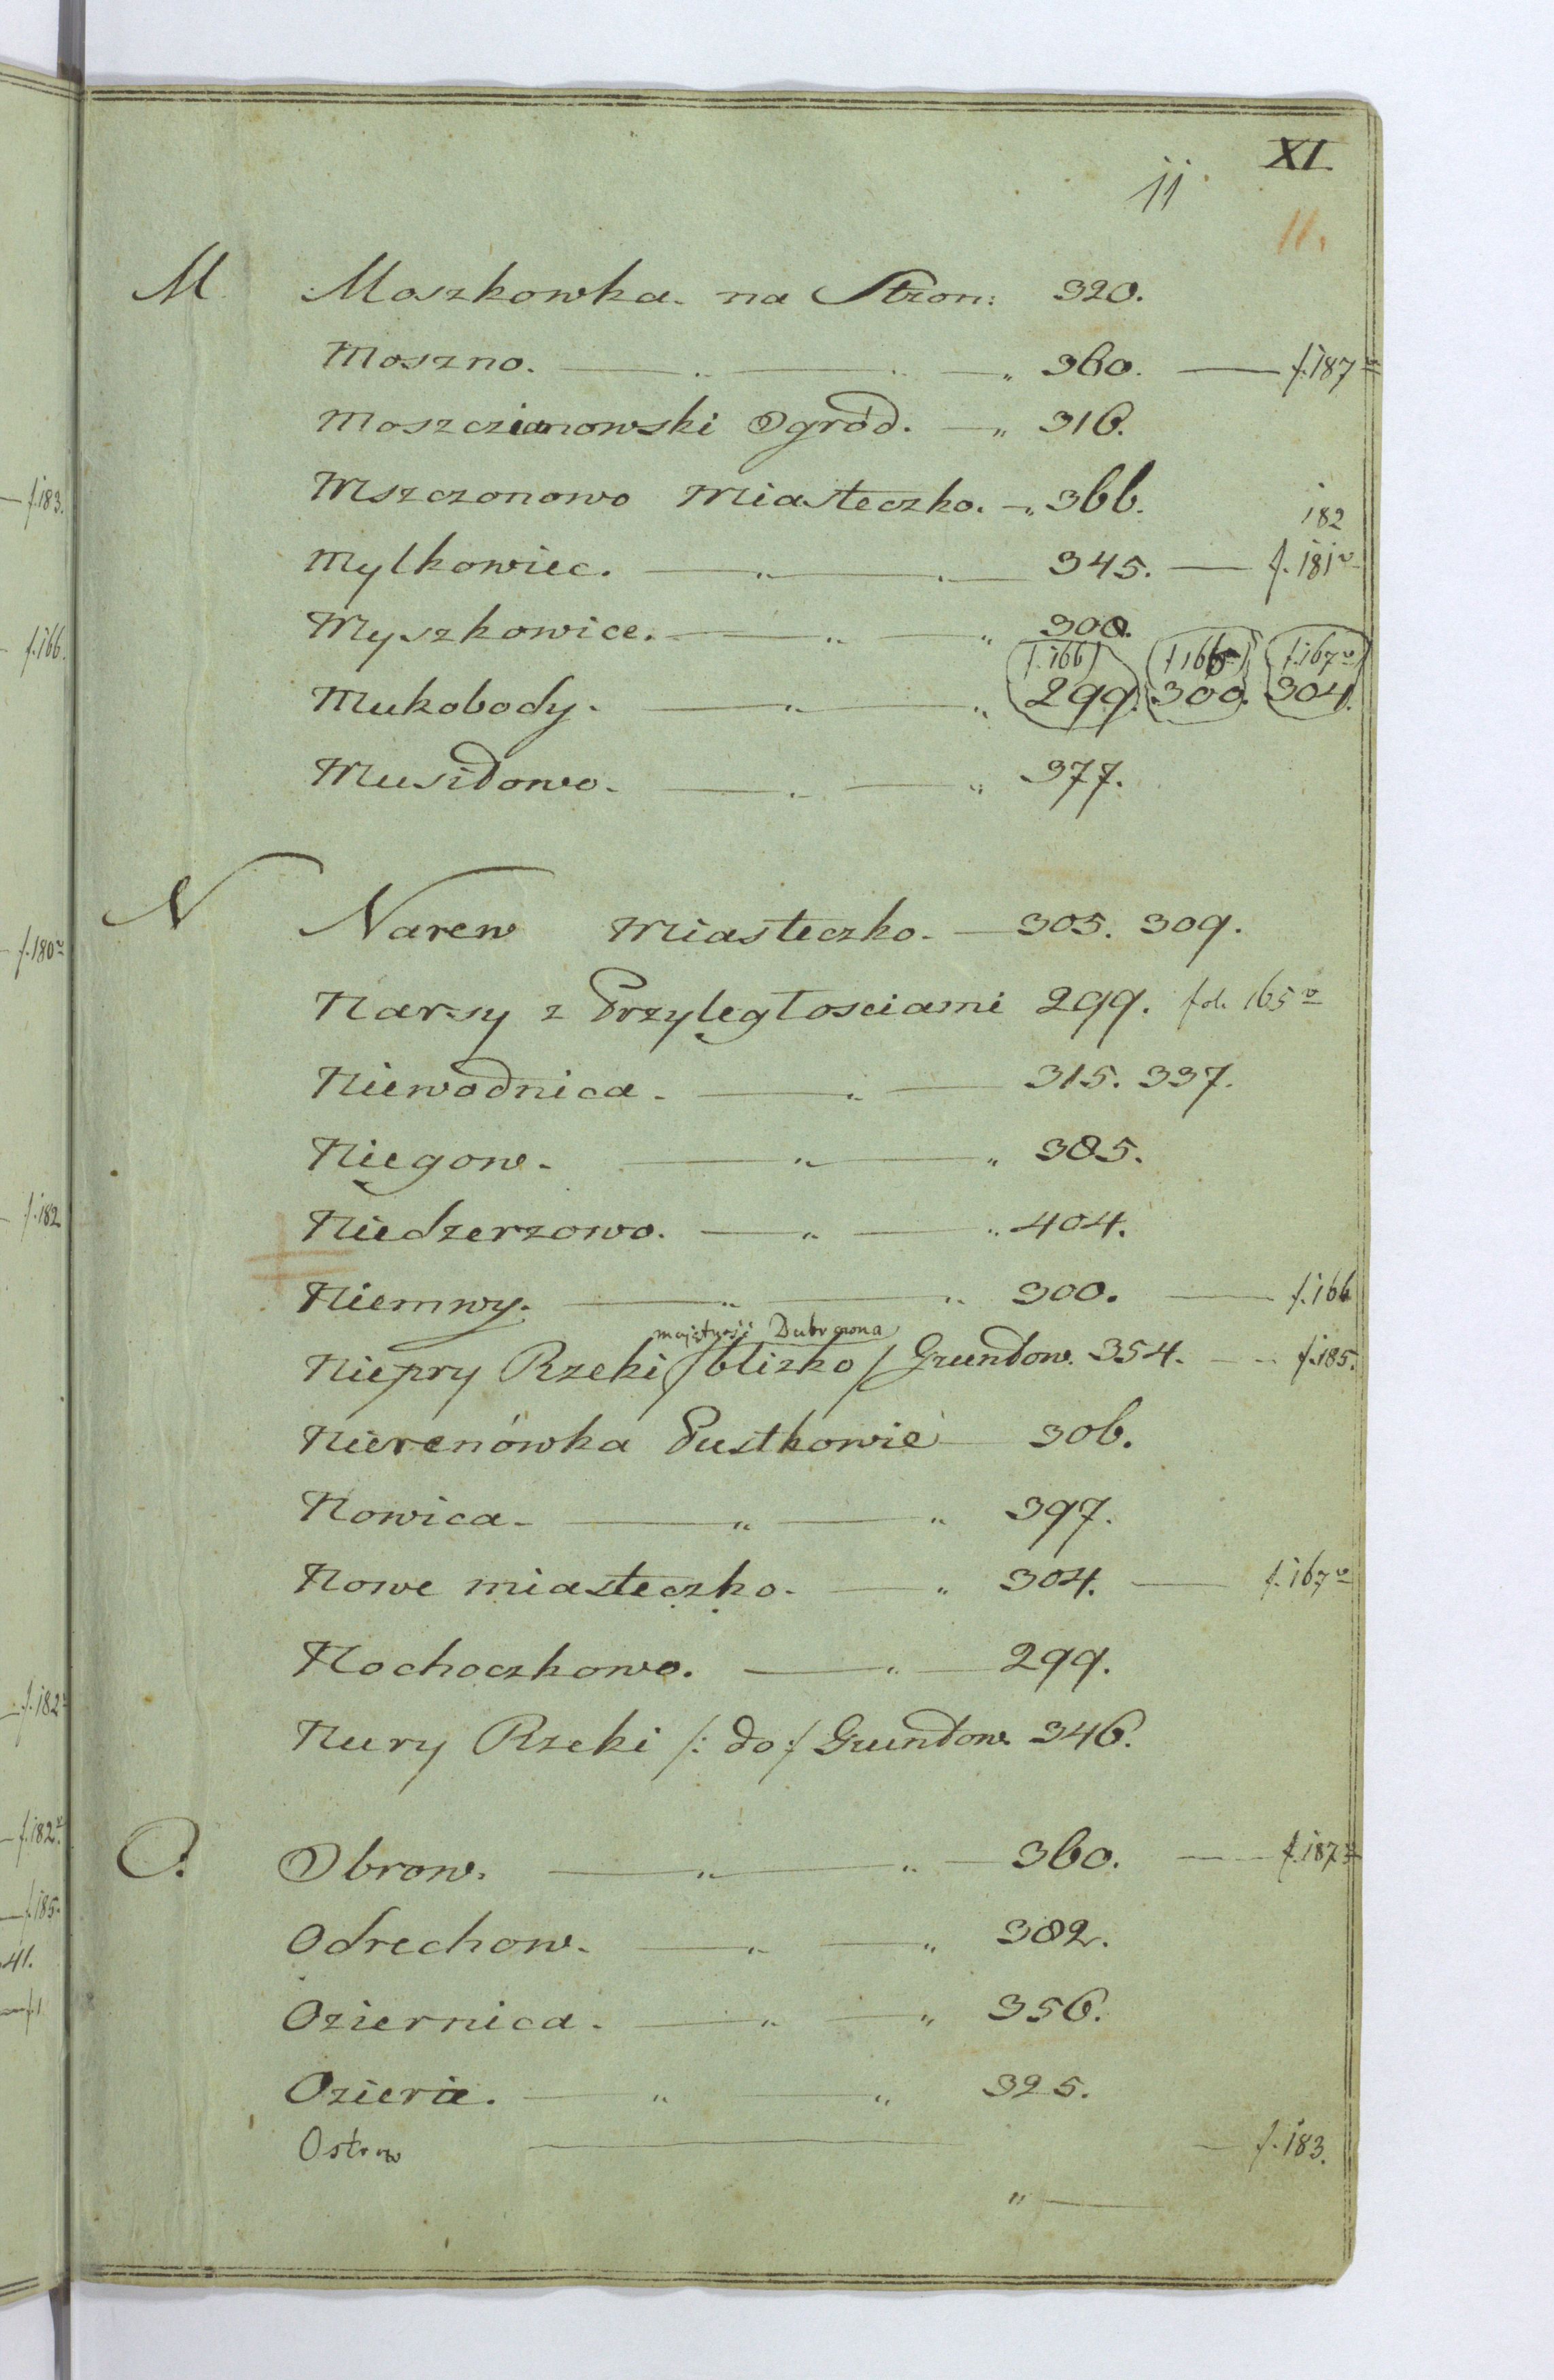 XI.
11
11.
M Moszkowka na Stron: 320.
Moszno. — " — " — " 360. — f. 187 v
Moszczianowski Ogród. — " 316.
Mszczonowo Miasteczko. — " 366.
182
Mylkowiec. — " — " — 345. — f. 181 v
Myszkowice. — " — " 300.
f. 166 f 166 f. 167 v
Mukobody. — " — " 299. 300. 304.
Musidowo. — " — " 377.
N Narew Miasteczko. — 305. 309.
Narsy z Przyległosciami 299. fol. 165 v
Niewodnica. — " — 315. 337.
Niegow. — " — " 385.
Niedzerzowo. — " — " 404.
Niemwy. — " — " 300. — f. 166
majętność Dubrowna
Niepry Rzeki / blizko / Gruntow. 354. — f. 185.
Nierenówka Pustkowie — 306.
Nowica. — " — " 397.
Nowe miasteczko. — " 304. — f. 167 v
Nochoczkowo. — " — 299.
Nury Rzeki /: do :/ Gruntow 346.
O. Obrow. — " — " — 360. — f. 187 v
Odrechow. — " — " 382.
Oziernica. — " — " 356.
Ozierie. — " — " 325.
Ostrow — f. 183.
" —
— f. 183.
— f. 166.
— f. 180 v
— f. 182
— f. 182
— f. 182 v
— f. 185.
41.